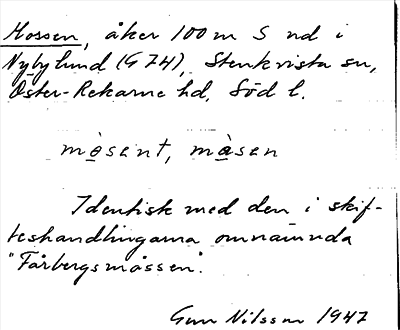 Mossen, åker 100 m S nd i
Nybylund (G 74), Stenkvista sn,
Öster-Rekarne hd, Söd l.
mòsent, màsen
Identisk med den i skif-
teshandlingarna omnämnda
"Fårbergsmåssen".
Gun Nilsson 1947